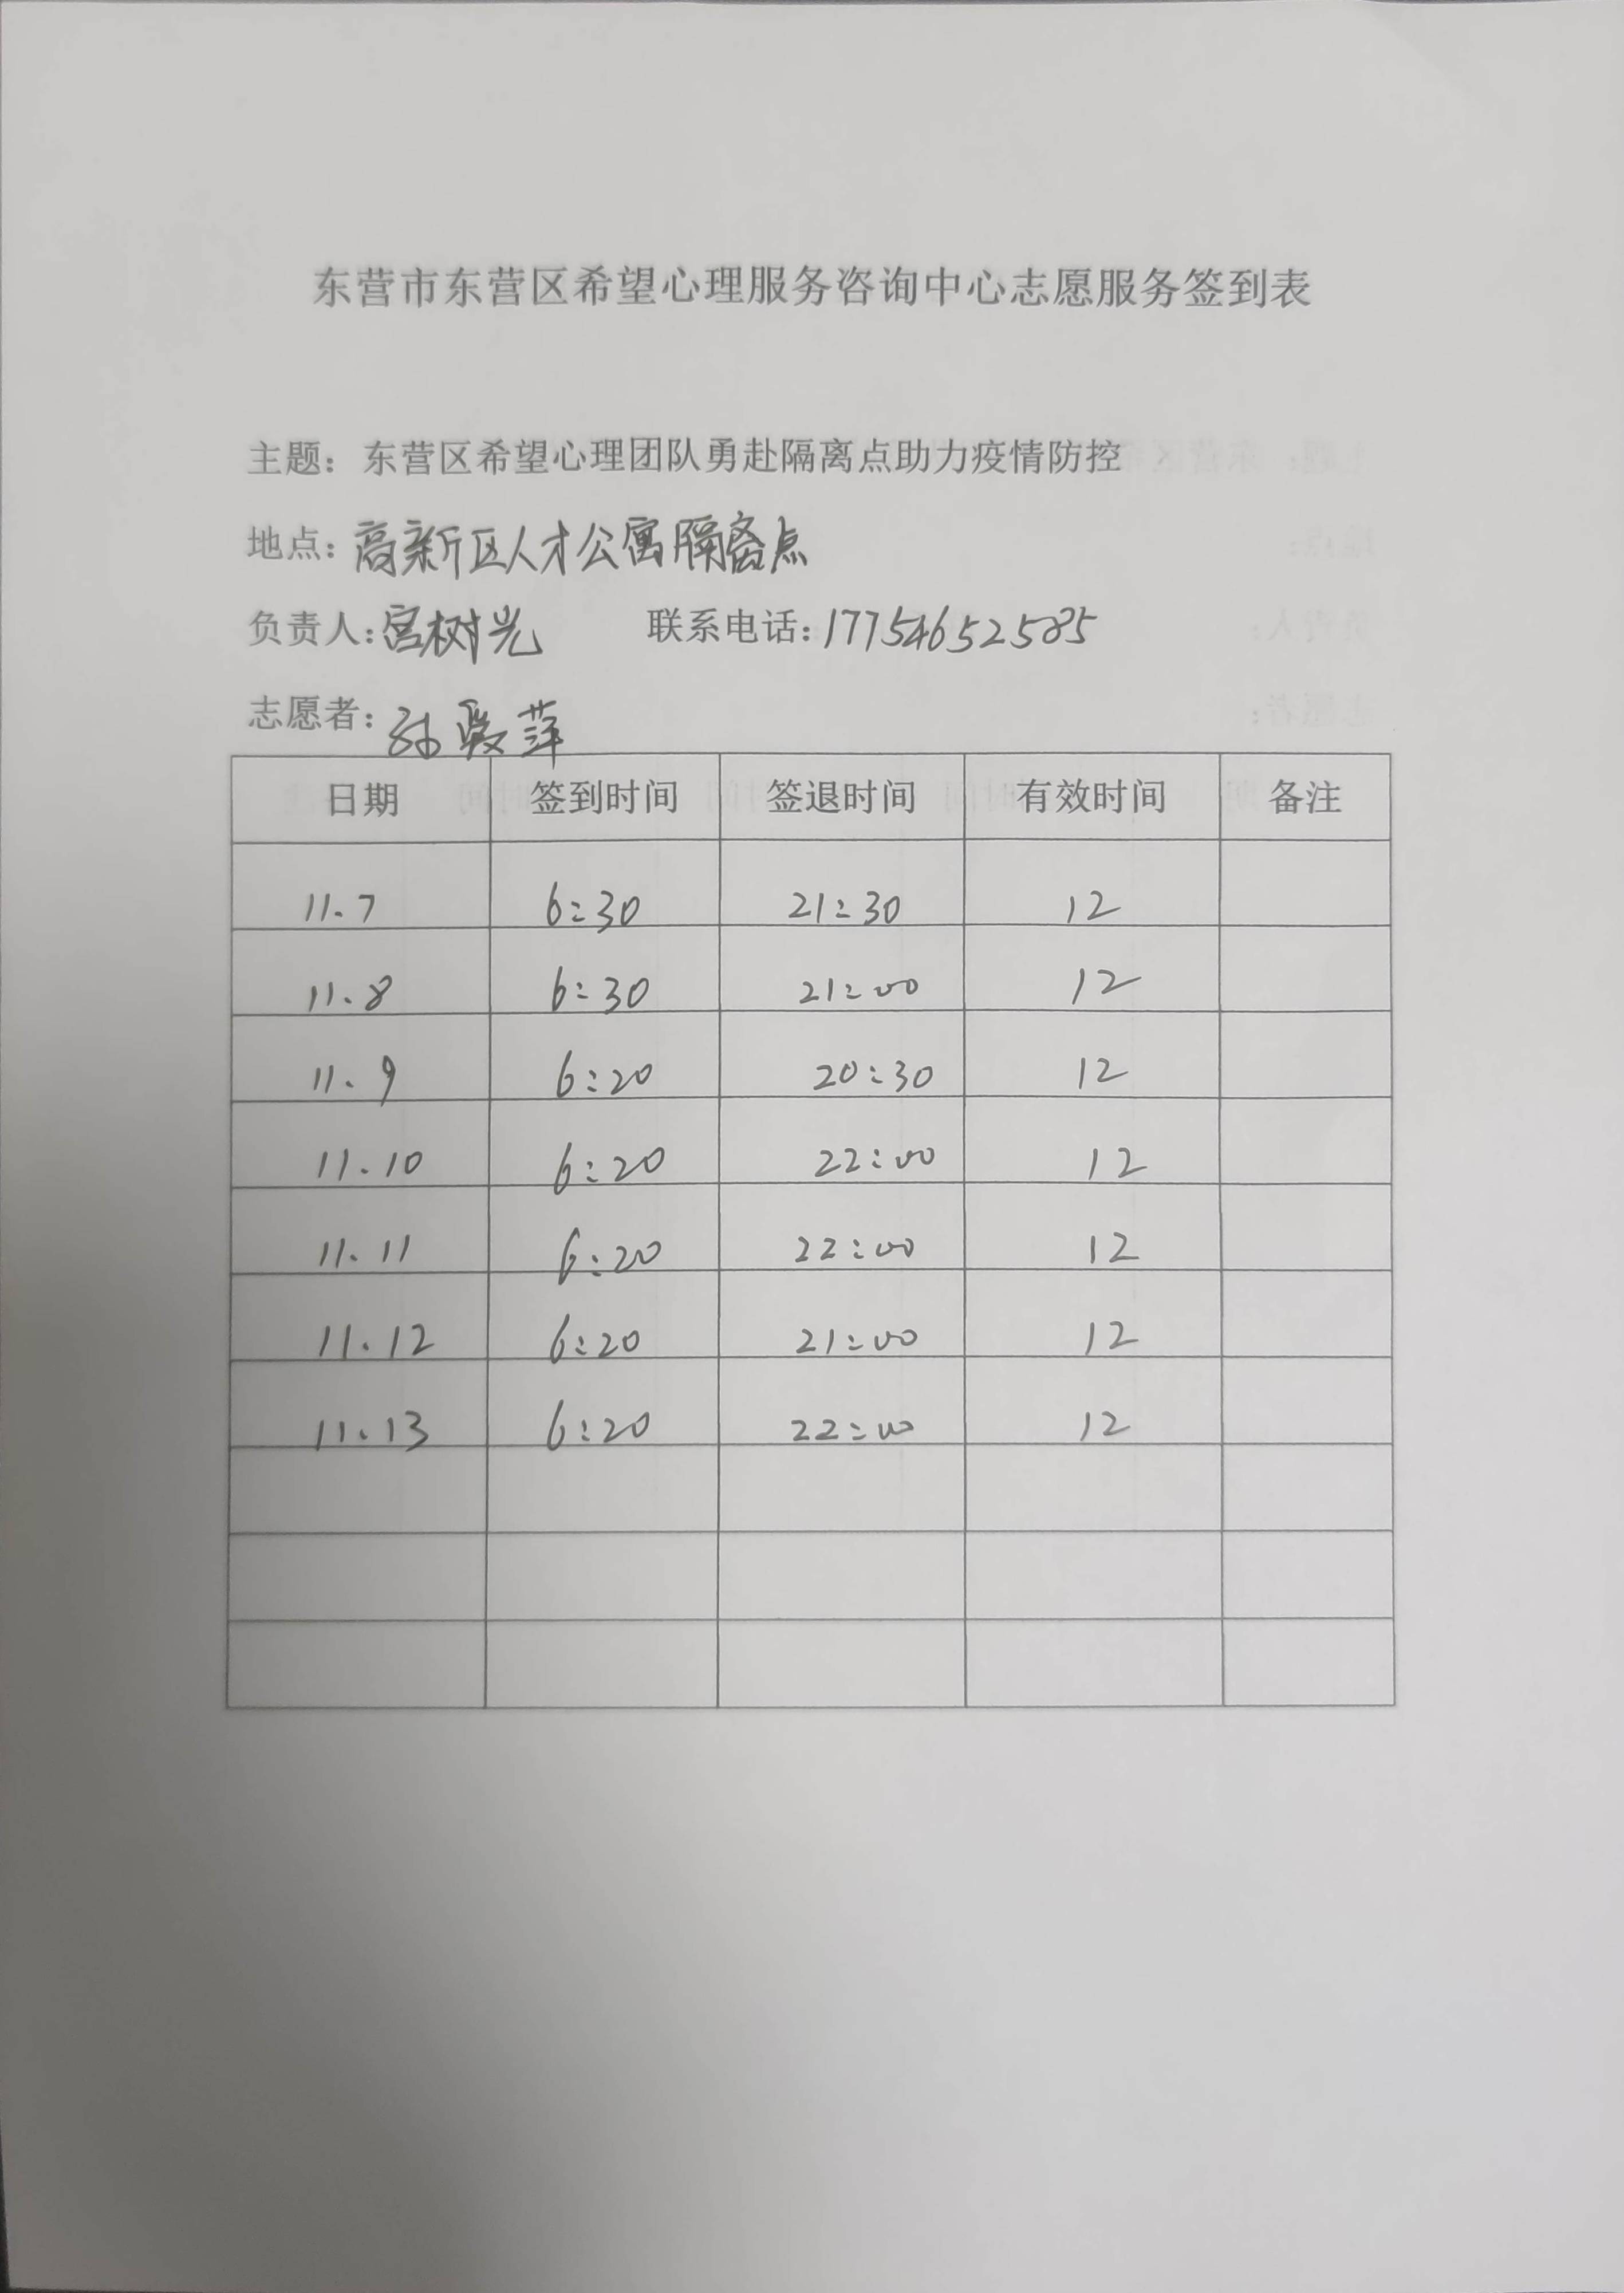 东营市东营区希望心理服务咨询中心志愿服务签到表
主题：东营区希望心理团队勇赴隔离点助力疫情防控
地点：高新区人才公寓隔离点
负责人：宫树光 联系电话：17754652585
志愿者：孙 萍
日期 签到时间 签退时间 有效时间 备注
11.7 6:30 21:30 12
11.8 6:30 21:00 12
11.9 6:20 20:30 12
11.10 6:20 22:00 12
11.11 6:20 22:00 12
11.12 6:20 21:00 12
11.13 6:20 22:00 12